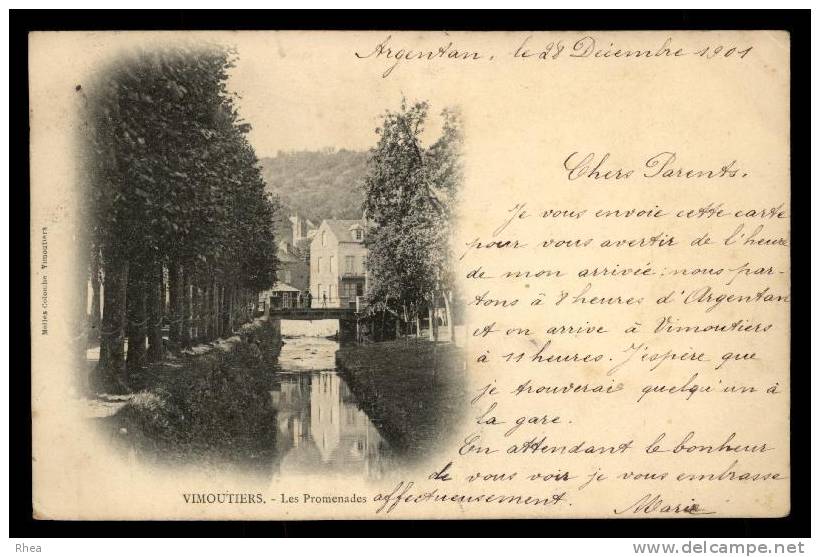 Argentan, le 28 Décembre 1901
Chers Parents.
Je vous envoie cette carte
pour vous avertir de l'heure
de mon arrivée: nous par-
tons à 8 heures d'Argentan
et on arrive à Vimoutiers
à 11 heures. J'espère que
je trouverai quelqu'un à
la gare.
En attendant le bonheur
de vous voir je vous embrasse
affectueusement. Marie
VIMOUTIERS. - Les Promenades
Melles Colombe Vimoutiers
Rhea
http://www.delcampe.net